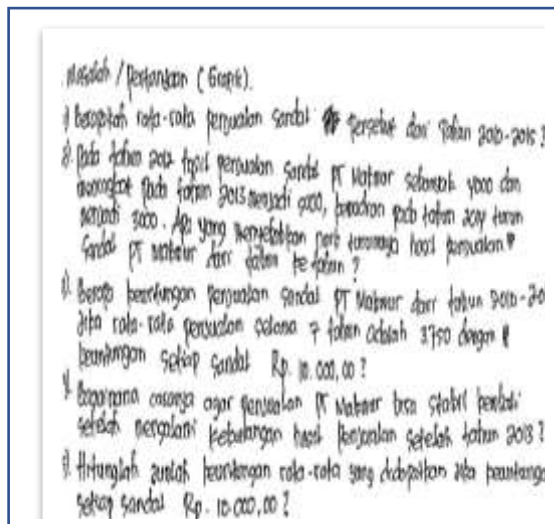 Masalah / Pertanyaan (Grafik).
1) Berapakah rata-rata penjualan sandal tersebut dari tahun 2010-2015?
2) Pada tahun 2012 hasil penjualan sandal PT Makmur sebanyak 4000 dan
meningkat pada tahun 2013 menjadi 5000, kemudian pada tahun 2014 turun
menjadi 3000. Apa yang menyebabkan turunnya hasil penjualan
sandal PT Makmur dari tahun ke tahun?
3) Berapa keuntungan penjualan sandal PT Makmur dari tahun 2010-20
Jika rata-rata penjualan selama 7 tahun adalah 3750 dengan
keuntungan setiap sandal Rp. 10.000,00?
4) Bagaimana caranya agar penjualan PT Makmur bisa stabil kembali
setelah mengalami hasil penjualan setelah tahun 2013?
5) Hitunglah jumlah keuntungan rata-rata yang didapatkan jika keuntunga
setiap sandal Rp. 10.000,00?